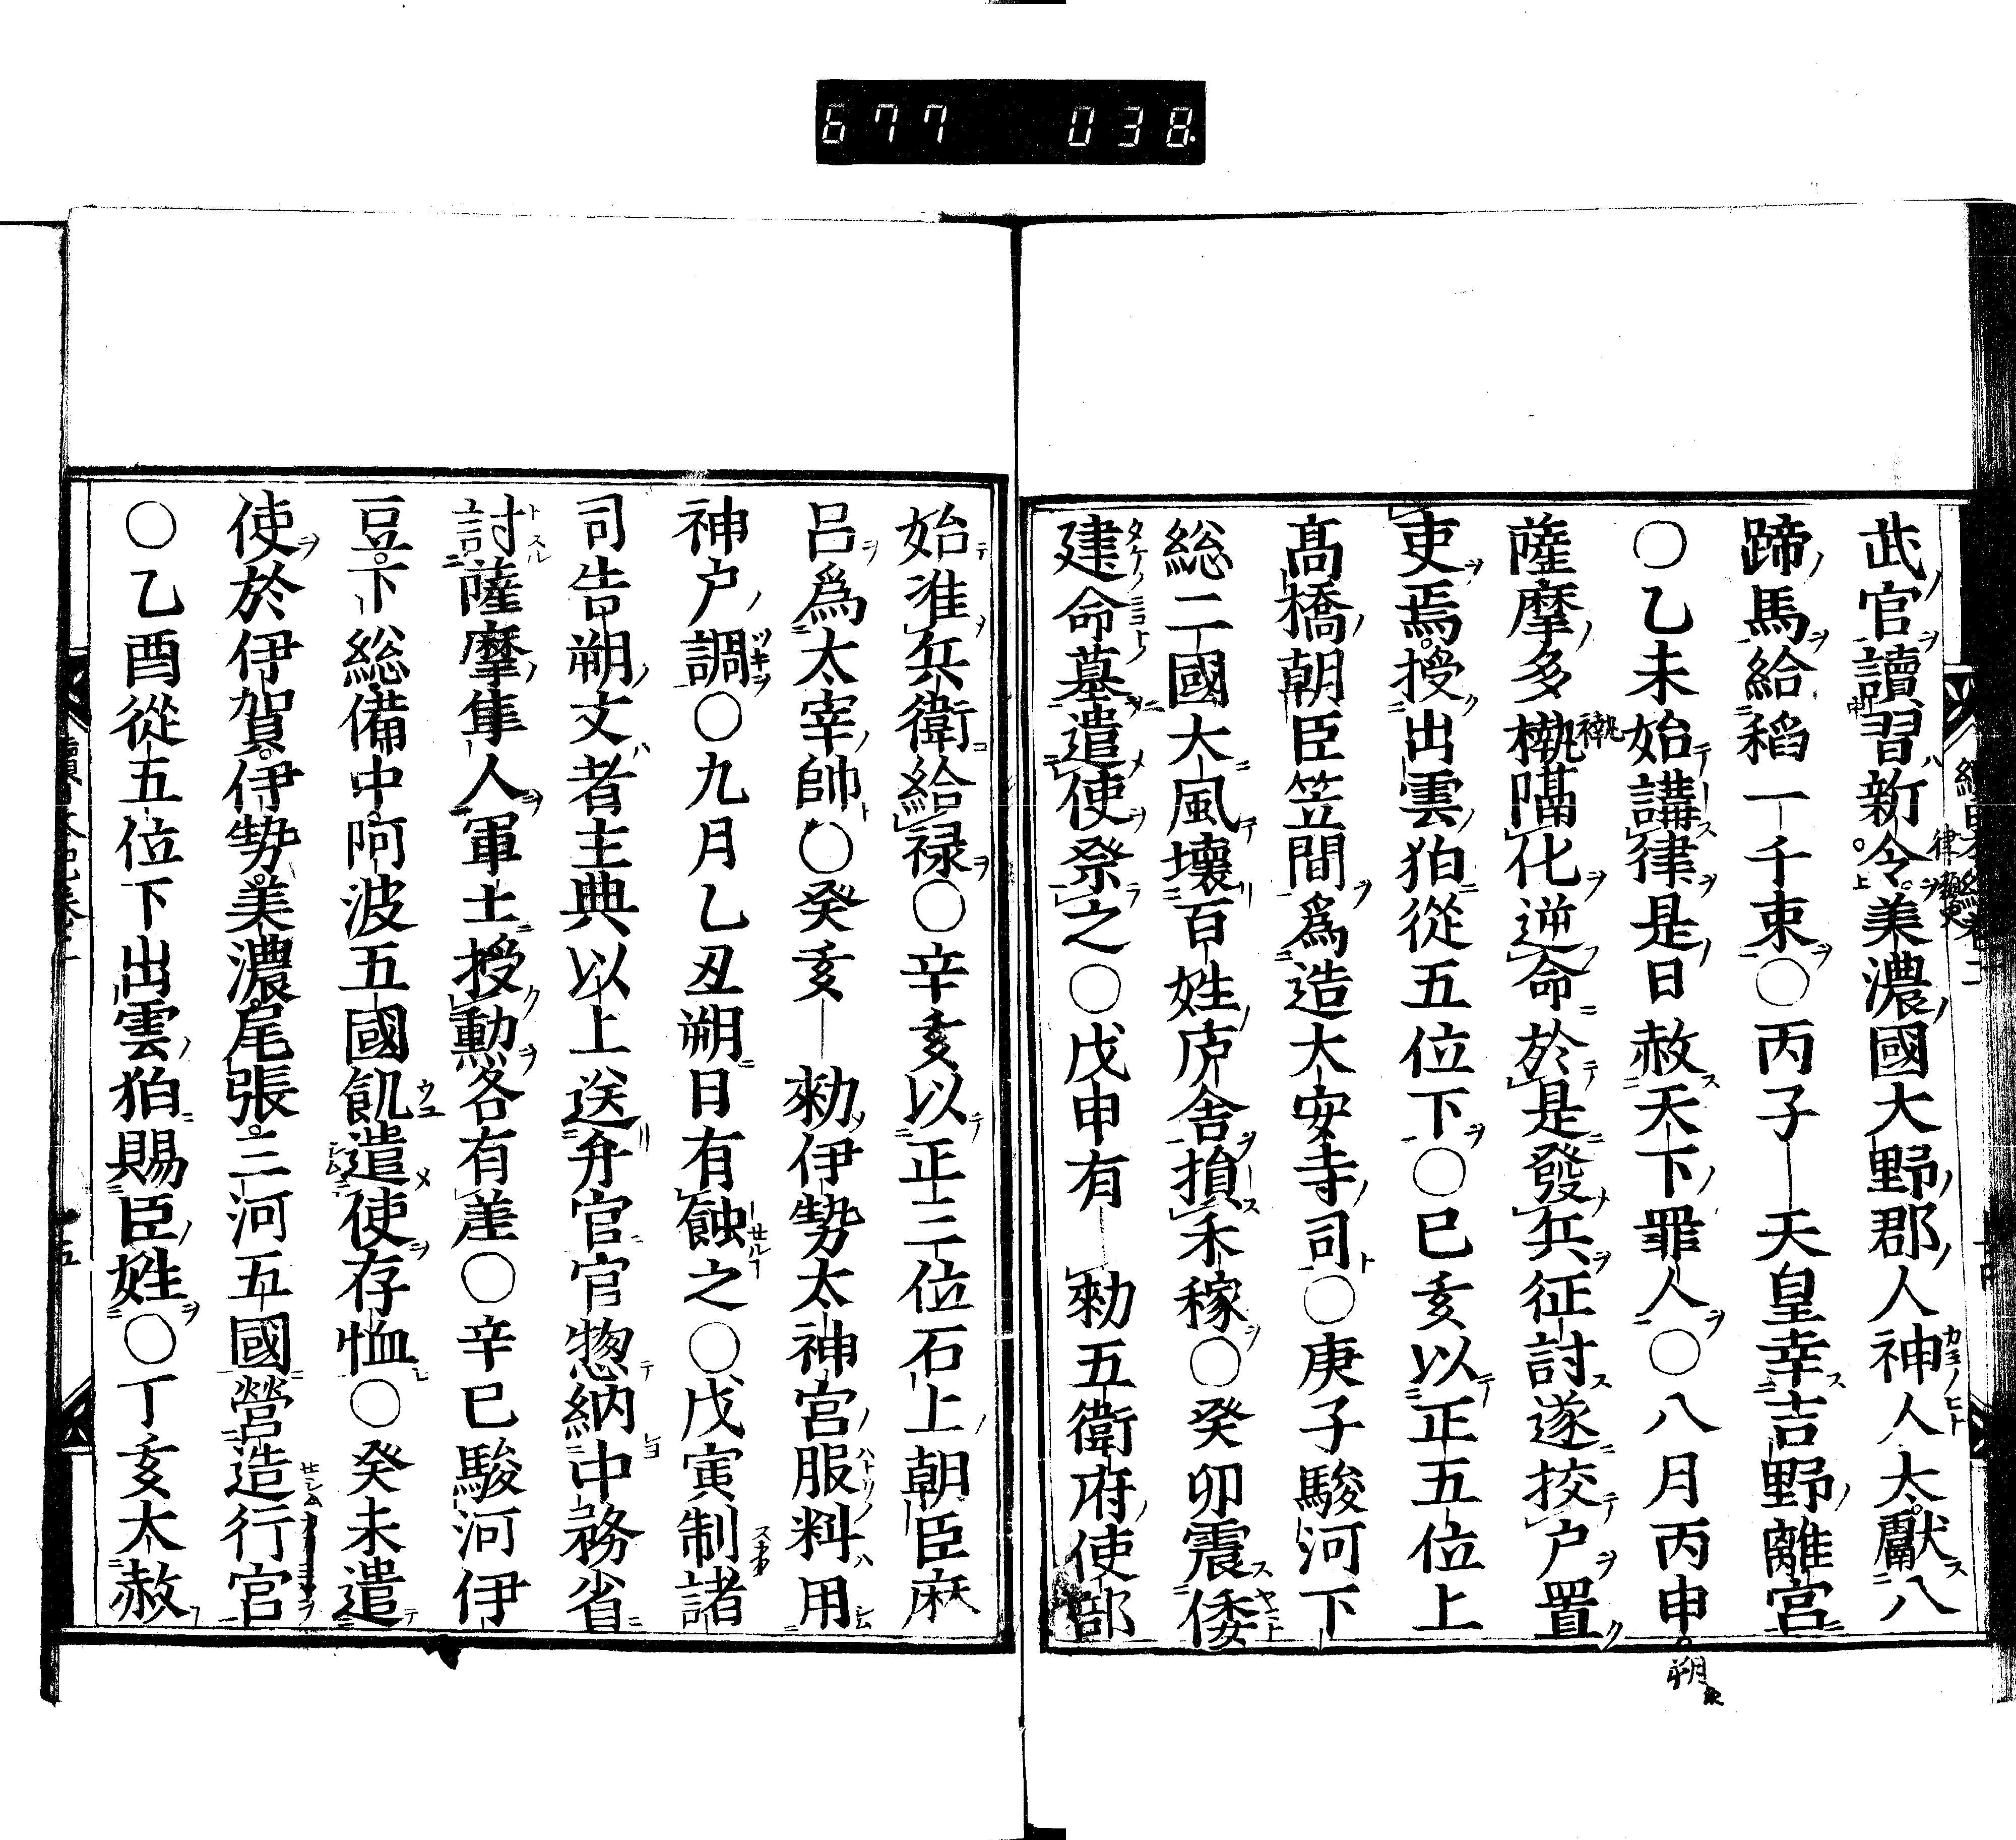 677 038
武官讀習新令美濃國大野郡人神人大獻八
蹄馬給稻一千束〇丙子天皇幸吉野離宮
〇乙未始講律是日赦天下罪人〇八月丙申
薩摩多褹隔化逆命於是發兵征討遂挍戸置
吏焉授出雲狛從五位下〇己亥以正五位上
髙橋朝臣笠間爲造大安寺司〇庚子駿河下
総二國大風壞百姓庐舎損禾稼〇癸卯震倭
建命墓遣使祭之〇戊申有勑五衛府使部
始准兵衛給禄〇辛亥以正三位石上朝臣麻
呂爲太宰帥〇癸亥勑伊勢太神宮服料用
神戸調〇九月乙丑朔日有蝕之〇戊寅制諸
司告朔文者主典以上送弁官官惣納中務省
討薩摩隼人軍士授勲各有差〇辛巳駿河伊
豆下総備中阿波五國飢遣使存恤〇癸未遣
使於伊賀伊勢美濃尾張三河五國營造行宮
〇乙酉從五位下出雲狛賜臣姓〇丁亥大赦